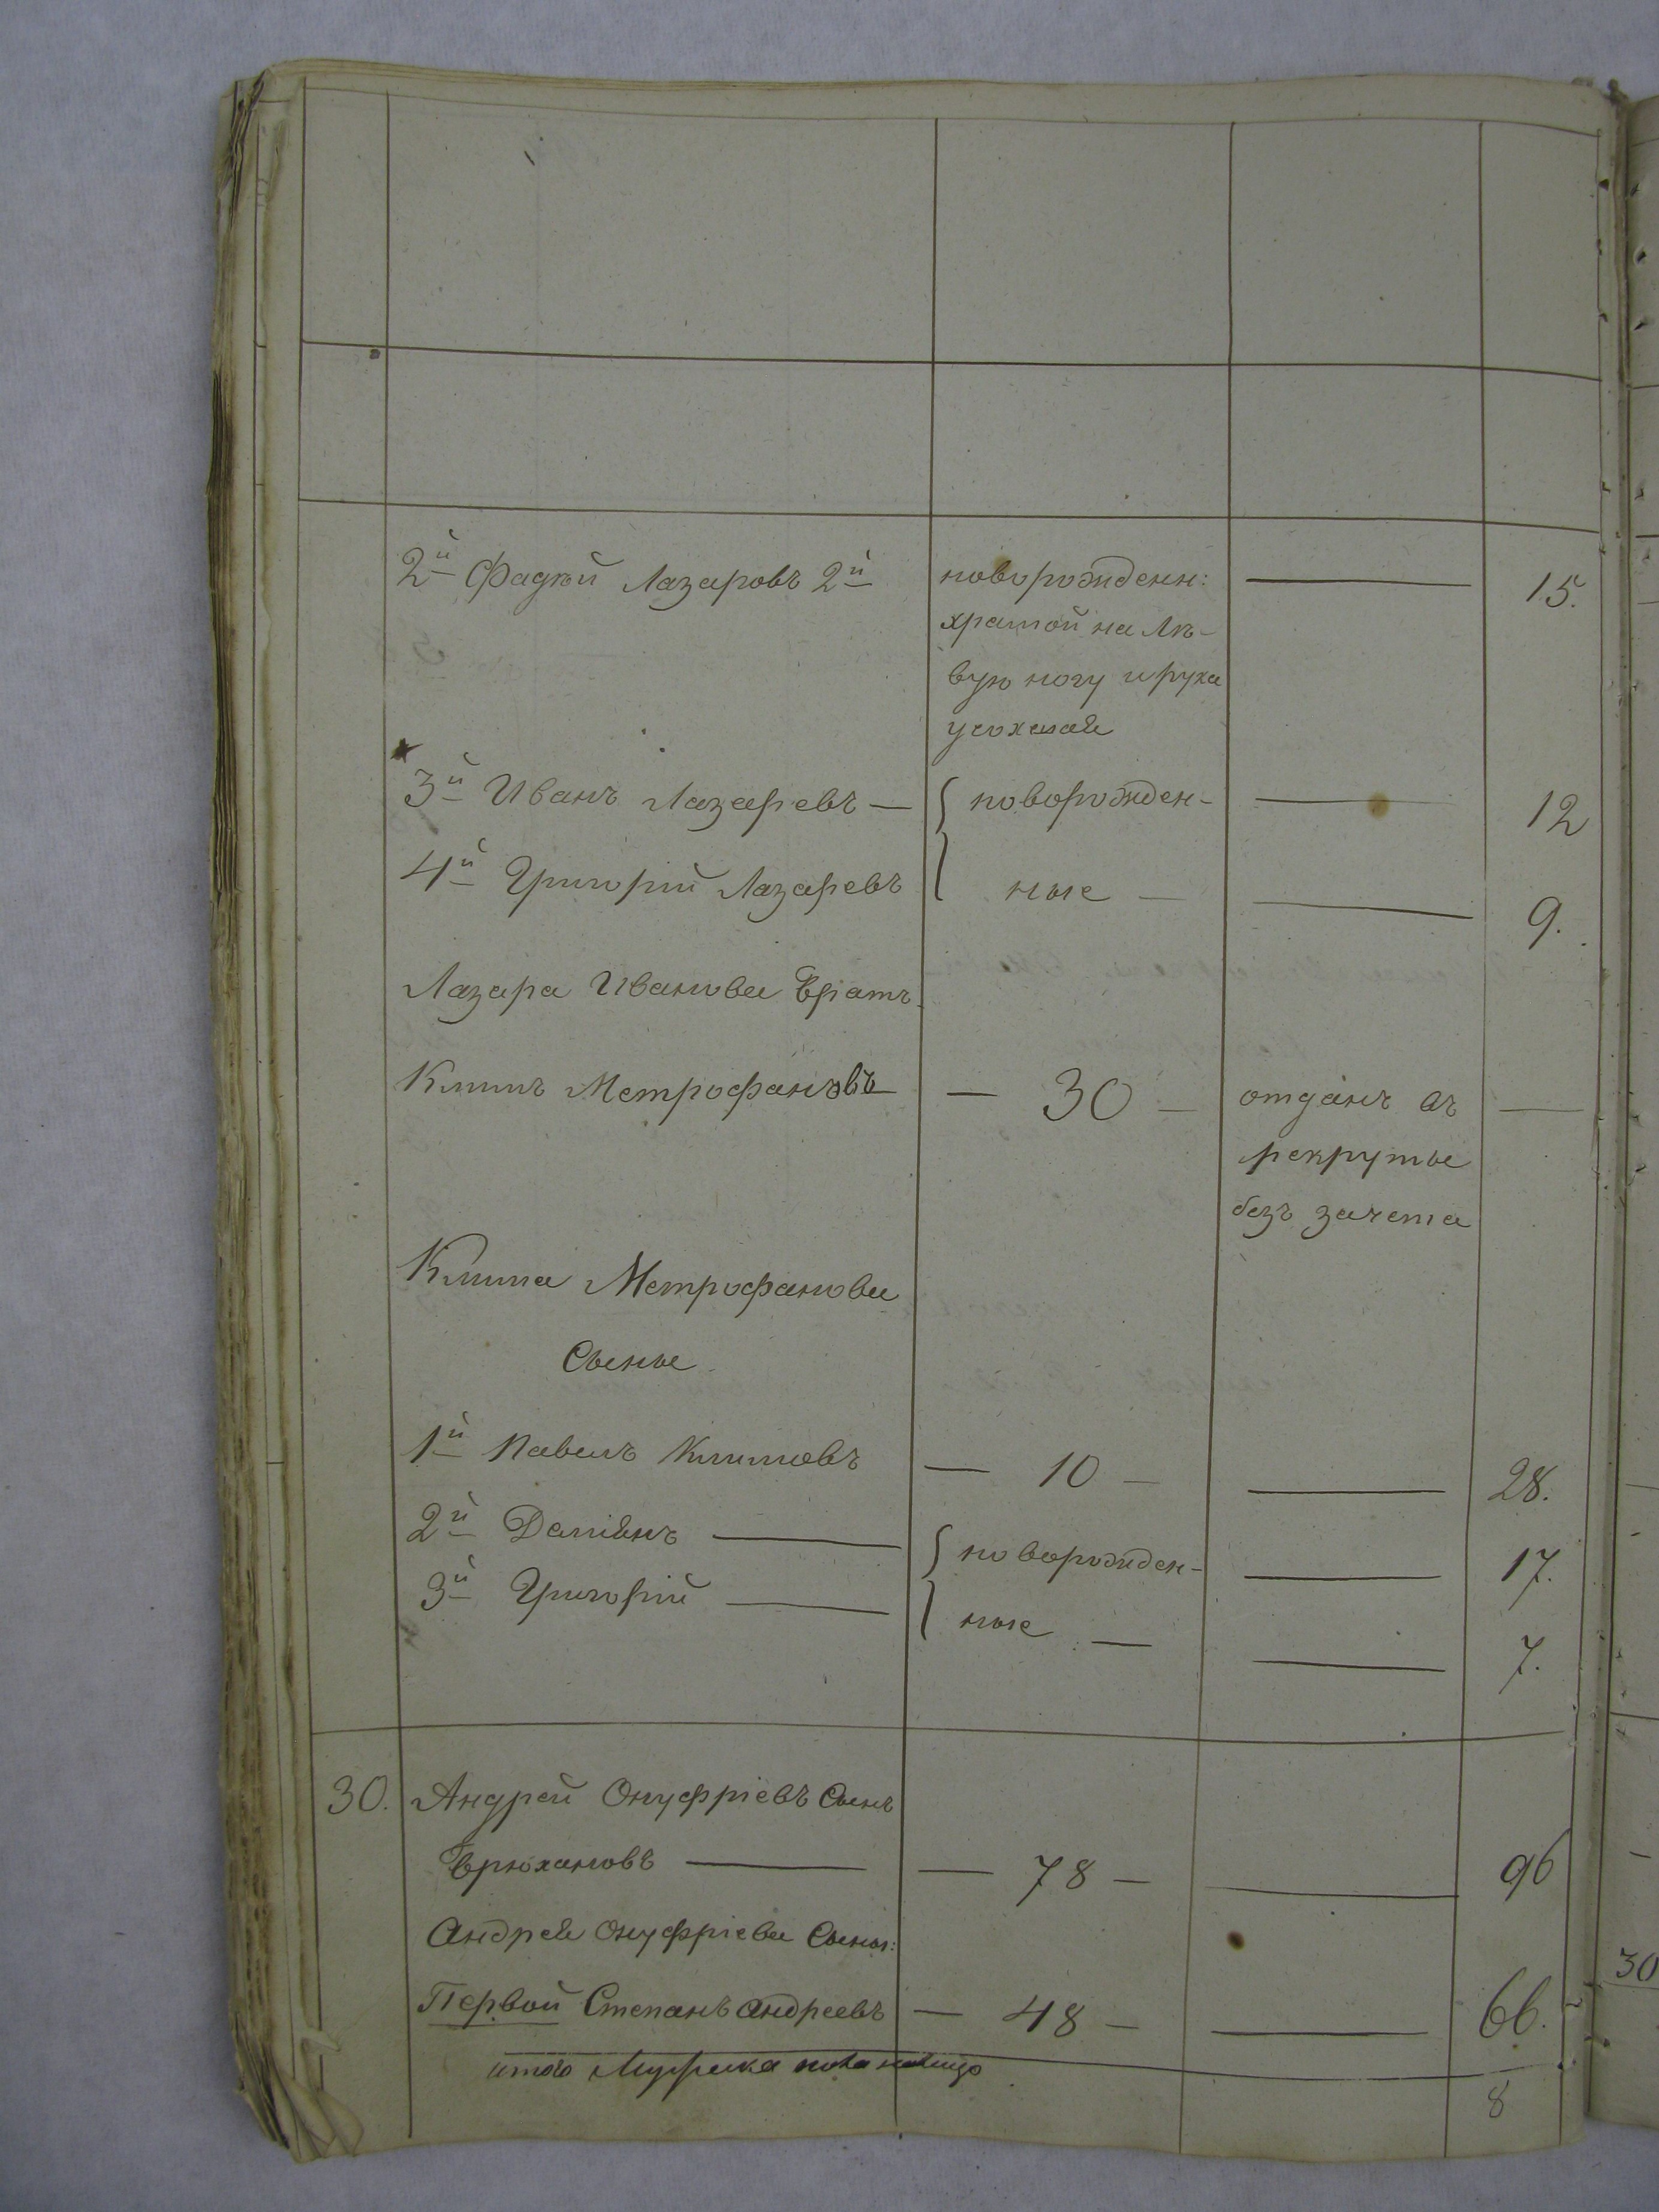 2й Фадѣй Лазаровъ 2й новорожденн: — 15.
храмой на лѣ-
вую ногу и рука
усохшая
3й Иванъ Лазаревъ — новорожден- — 12
4й Григорій Лазаревъ ные — — 9.
Лазара Иванова братъ
Климъ Метрофановъ — 30 — отданъ въ —
рекруты
безъ зачета
Клима Метрофанова
Сыны
1й Павелъ Климовъ — 10 — — 28.
2й Даміянъ — новорожден- — 17.
3й Григорій — ные — — 7.
30. Андрей Онуфріевъ Сынъ
Брюхановъ — — 78 — — 96
Андрея Онуфріева Сыны:
Первой Степанъ Андреевъ — 48 — — 66.
итого Муржска пола налицо 8
30